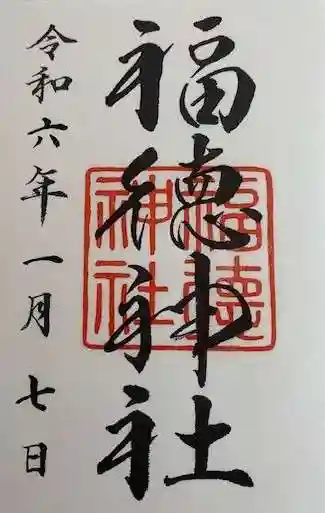 福徳神社
福徳神社
令和六年一月七日